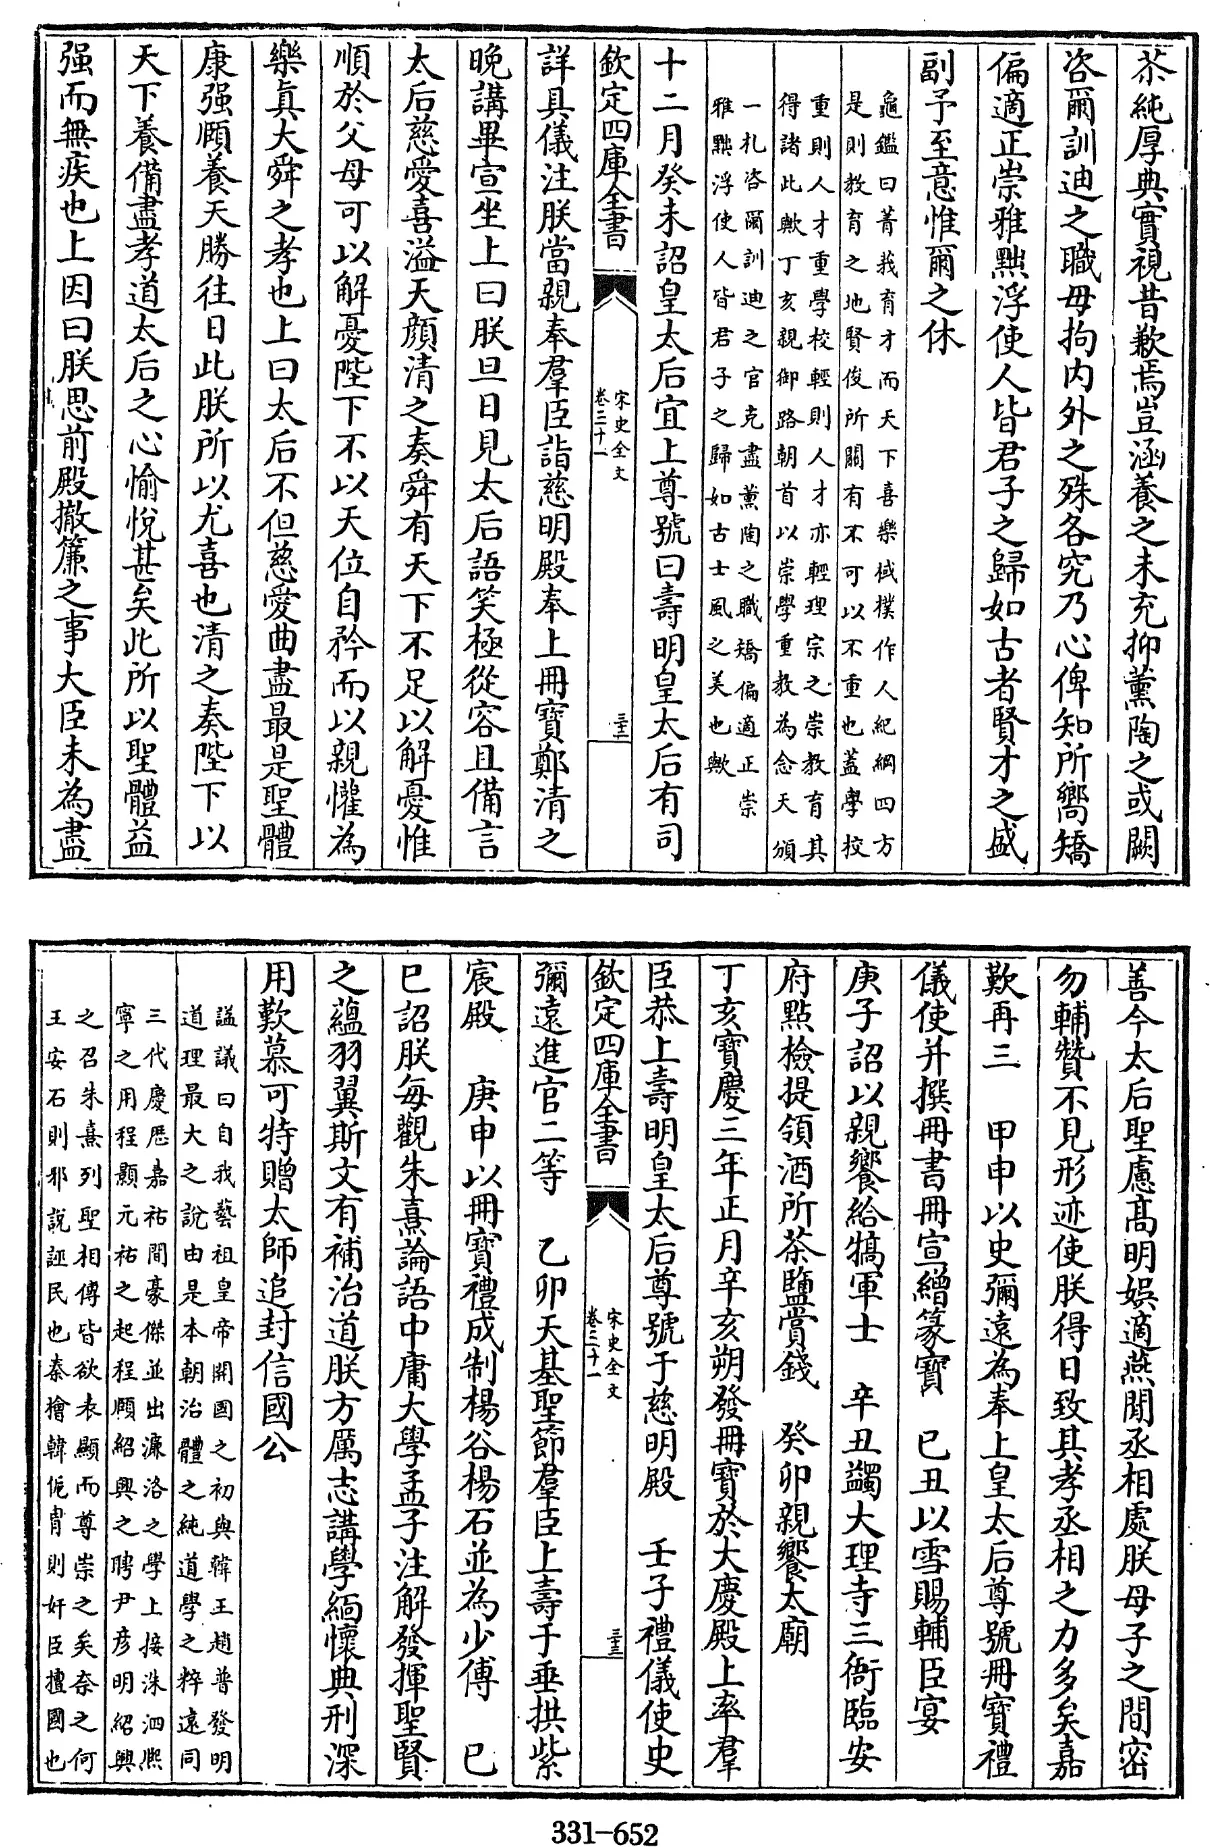 茶純厚典實視昔歉焉豈涵養之未充抑薰陶之或闕
咨爾訓迪之職毋拘内外之殊各究乃心俾知所嚮矯
偏適正崇雅黜浮使人皆君子之歸如古者賢才之盛
副予至意惟爾之休
龜鑑曰菁莪育才而天下喜樂棫樸作人紀綱四方
是則教育之地賢俊所關有不可以不重也蓋學校
重則人才重學校輕則人才亦輕理宗之崇教育其
得諸此歟丁亥親御路朝首以崇學重教為念天頒
一札咨爾訓迪之官克盡薰陶之職矯偏適正崇
雅黜浮使人皆君子之歸如古士風之美也歟
十二月癸未詔皇太后宜上尊號曰壽明皇太后有司
欽定四庫全書
宋史全文
卷三十一
三十二
詳具儀注朕當親奉羣臣詣慈明殿奉上冊寶鄭清之
晚講畢宣坐上曰朕旦日見太后語笑極從容且備言
太后慈愛喜溢天顔清之奏舜有天下不足以解憂惟
順於父母可以解憂陛下不以天位自矜而以親懽為
樂真大舜之孝也上曰太后不但慈愛曲盡最是聖體
康强頤養天勝往日此朕所以尤喜也清之奏陛下以
天下養備盡孝道太后之心愉悅甚矣此所以聖體益
强而無疾也上因曰朕思前殿撤簾之事大臣未為盡
善今太后聖慮髙明娯適燕閒丞相處朕母子之間密
勿輔贊不見形迹使朕得日致其孝丞相之力多矣嘉
歎再三　甲申以史彌遠為奉上皇太后尊號冊寶禮
儀使并撰冊書冊宣繒篆寳　已丑以雪賜輔臣宴
庚子詔以親饗給犒軍士　辛丑蠲大理寺三衙臨安
府點檢提領酒所茶鹽賞錢　癸卯親饗太廟
丁亥寳慶三年正月辛亥朔發冊寶於大慶殿上率羣
臣恭上壽明皇太后尊號于慈明殿　壬子禮儀使史
欽定四庫全書
宋史全文
卷三十一
三十三
彌遠進官二等　乙卯天基聖節羣臣上壽于垂拱紫
宸殿　庚申以冊寶禮成制楊谷楊石並為少傅　已
巳詔朕每觀朱熹論語中庸大學孟子注解發揮聖賢
之藴羽翼斯文有補治道朕方厲志講學緬懷典刑深
用歎慕可特贈太師追封信國公
謚議曰自我藝祖皇帝開國之初與韓王趙普發明
道理最大之說由是本朝治體之純道學之粹遠同
三代慶厯嘉祐間豪傑並出濂洛之學上接洙泗熙
寧之用程顥元祐之起程頤紹興之聘尹彦明紹興
之召朱熹列聖相傳皆欲表顯而尊崇之矣奈之何
王安石則邪說誣民也秦檜韓侂胄則奸臣擅國也
331-652